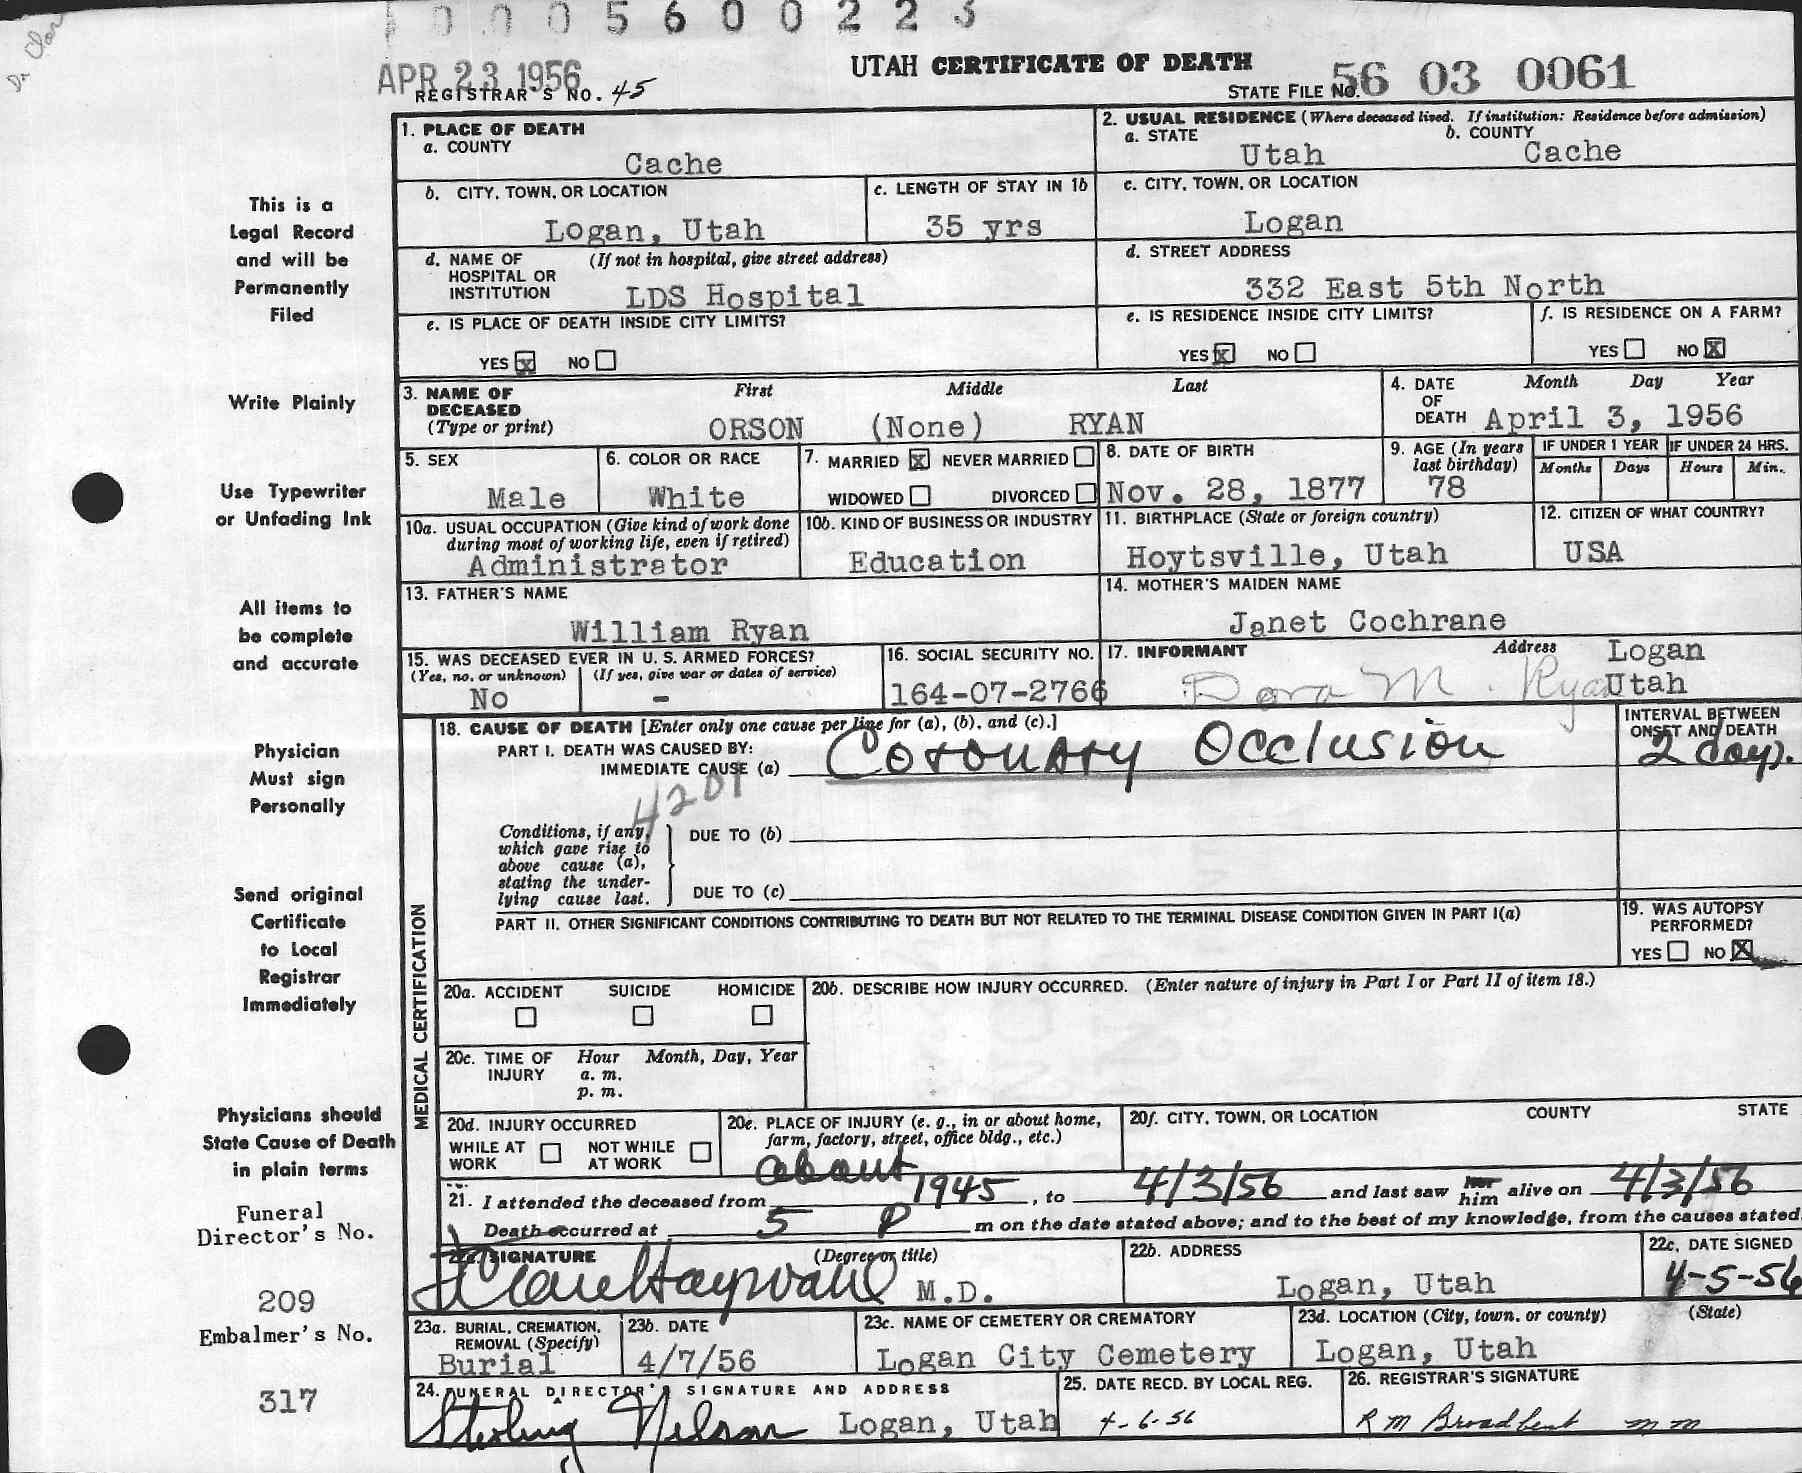 0 0 0 5 6 0 0 2 2 3
APR 23 1956
UTAH CERTIFICATE OF DEATH
REGISTRAR'S NO. 45
STATE FILE NO. 56 03 0061
1. PLACE OF DEATH
a. COUNTY
Cache
2. USUAL RESIDENCE (Where deceased lived. If institution: Residence before admission)
a. STATE
Utah
b. COUNTY
Cache
b. CITY, TOWN, OR LOCATION
Logan, Utah
c. LENGTH OF STAY IN 1b
35 yrs
c. CITY, TOWN, OR LOCATION
Logan
d. NAME OF HOSPITAL OR INSTITUTION
(If not in hospital, give street address)
LDS Hospital
d. STREET ADDRESS
332 East 5th North
e. IS PLACE OF DEATH INSIDE CITY LIMITS?
YES x NO
e. IS RESIDENCE INSIDE CITY LIMITS?
YES x NO
f. IS RESIDENCE ON A FARM?
YES NO x
3. NAME OF DECEASED (Type or print)
First Middle Last
ORSON (None) RYAN
4. DATE OF DEATH
Month Day Year
April 3, 1956
5. SEX
Male
6. COLOR OR RACE
White
7. MARRIED x NEVER MARRIED
WIDOWED DIVORCED
8. DATE OF BIRTH
Nov. 28, 1877
9. AGE (In years last birthday)
78
IF UNDER 1 YEAR
Months Days
IF UNDER 24 HRS.
Hours Min.
10a. USUAL OCCUPATION (Give kind of work done during most of working life, even if retired)
Administrator
10b. KIND OF BUSINESS OR INDUSTRY
Education
11. BIRTHPLACE (State or foreign country)
Hoytsville, Utah
12. CITIZEN OF WHAT COUNTRY?
USA
13. FATHER'S NAME
William Ryan
14. MOTHER'S MAIDEN NAME
Janet Cochrane
15. WAS DECEASED EVER IN U. S. ARMED FORCES?
(Yes, no, or unknown) (If yes, give war or dates of service)
No -
16. SOCIAL SECURITY NO.
164-07-2766
17. INFORMANT Address
Dora M. Ryan Logan
Utah
MEDICAL CERTIFICATION
18. CAUSE OF DEATH [Enter only one cause per line for (a), (b), and (c).]
PART I. DEATH WAS CAUSED BY:
IMMEDIATE CAUSE (a) Coronary Occlusion
INTERVAL BETWEEN ONSET AND DEATH
2 days.
4201
Conditions, if any, which gave rise to above cause (a), stating the underlying cause last.
DUE TO (b)
DUE TO (c)
PART II. OTHER SIGNIFICANT CONDITIONS CONTRIBUTING TO DEATH BUT NOT RELATED TO THE TERMINAL DISEASE CONDITION GIVEN IN PART I(a)
19. WAS AUTOPSY PERFORMED?
YES NO X
20a. ACCIDENT SUICIDE HOMICIDE
20b. DESCRIBE HOW INJURY OCCURRED. (Enter nature of injury in Part I or Part II of item 18.)
20c. TIME OF INJURY
Hour Month, Day, Year
a. m.
p. m.
20d. INJURY OCCURRED
WHILE AT WORK NOT WHILE AT WORK
20e. PLACE OF INJURY (e. g., in or about home, farm, factory, street, office bldg., etc.)
20f. CITY, TOWN, OR LOCATION COUNTY STATE
21. I attended the deceased from about 1945, to 4/3/56 and last saw her him alive on 4/3/56
Death occurred at 5 P m on the date stated above; and to the best of my knowledge, from the causes stated.
22a. SIGNATURE (Degree or title)
Clare Hayward M.D.
22b. ADDRESS
Logan, Utah
22c. DATE SIGNED
4-5-56
23a. BURIAL, CREMATION, REMOVAL (Specify)
Burial
23b. DATE
4/7/56
23c. NAME OF CEMETERY OR CREMATORY
Logan City Cemetery
23d. LOCATION (City, town, or county) (State)
Logan, Utah
24. FUNERAL DIRECTOR'S SIGNATURE AND ADDRESS
Sterling Nelson Logan, Utah
25. DATE RECD. BY LOCAL REG.
4-6-56
26. REGISTRAR'S SIGNATURE
R M Broadbent mm
This is a
Legal Record
and will be
Permanently
Filed
Write Plainly
Use Typewriter
or Unfading Ink
All items to
be complete
and accurate
Physician
Must sign
Personally
Send original
Certificate
to Local
Registrar
Immediately
Physicians should
State Cause of Death
in plain terms
Funeral
Director's No.
209
Embalmer's No.
317